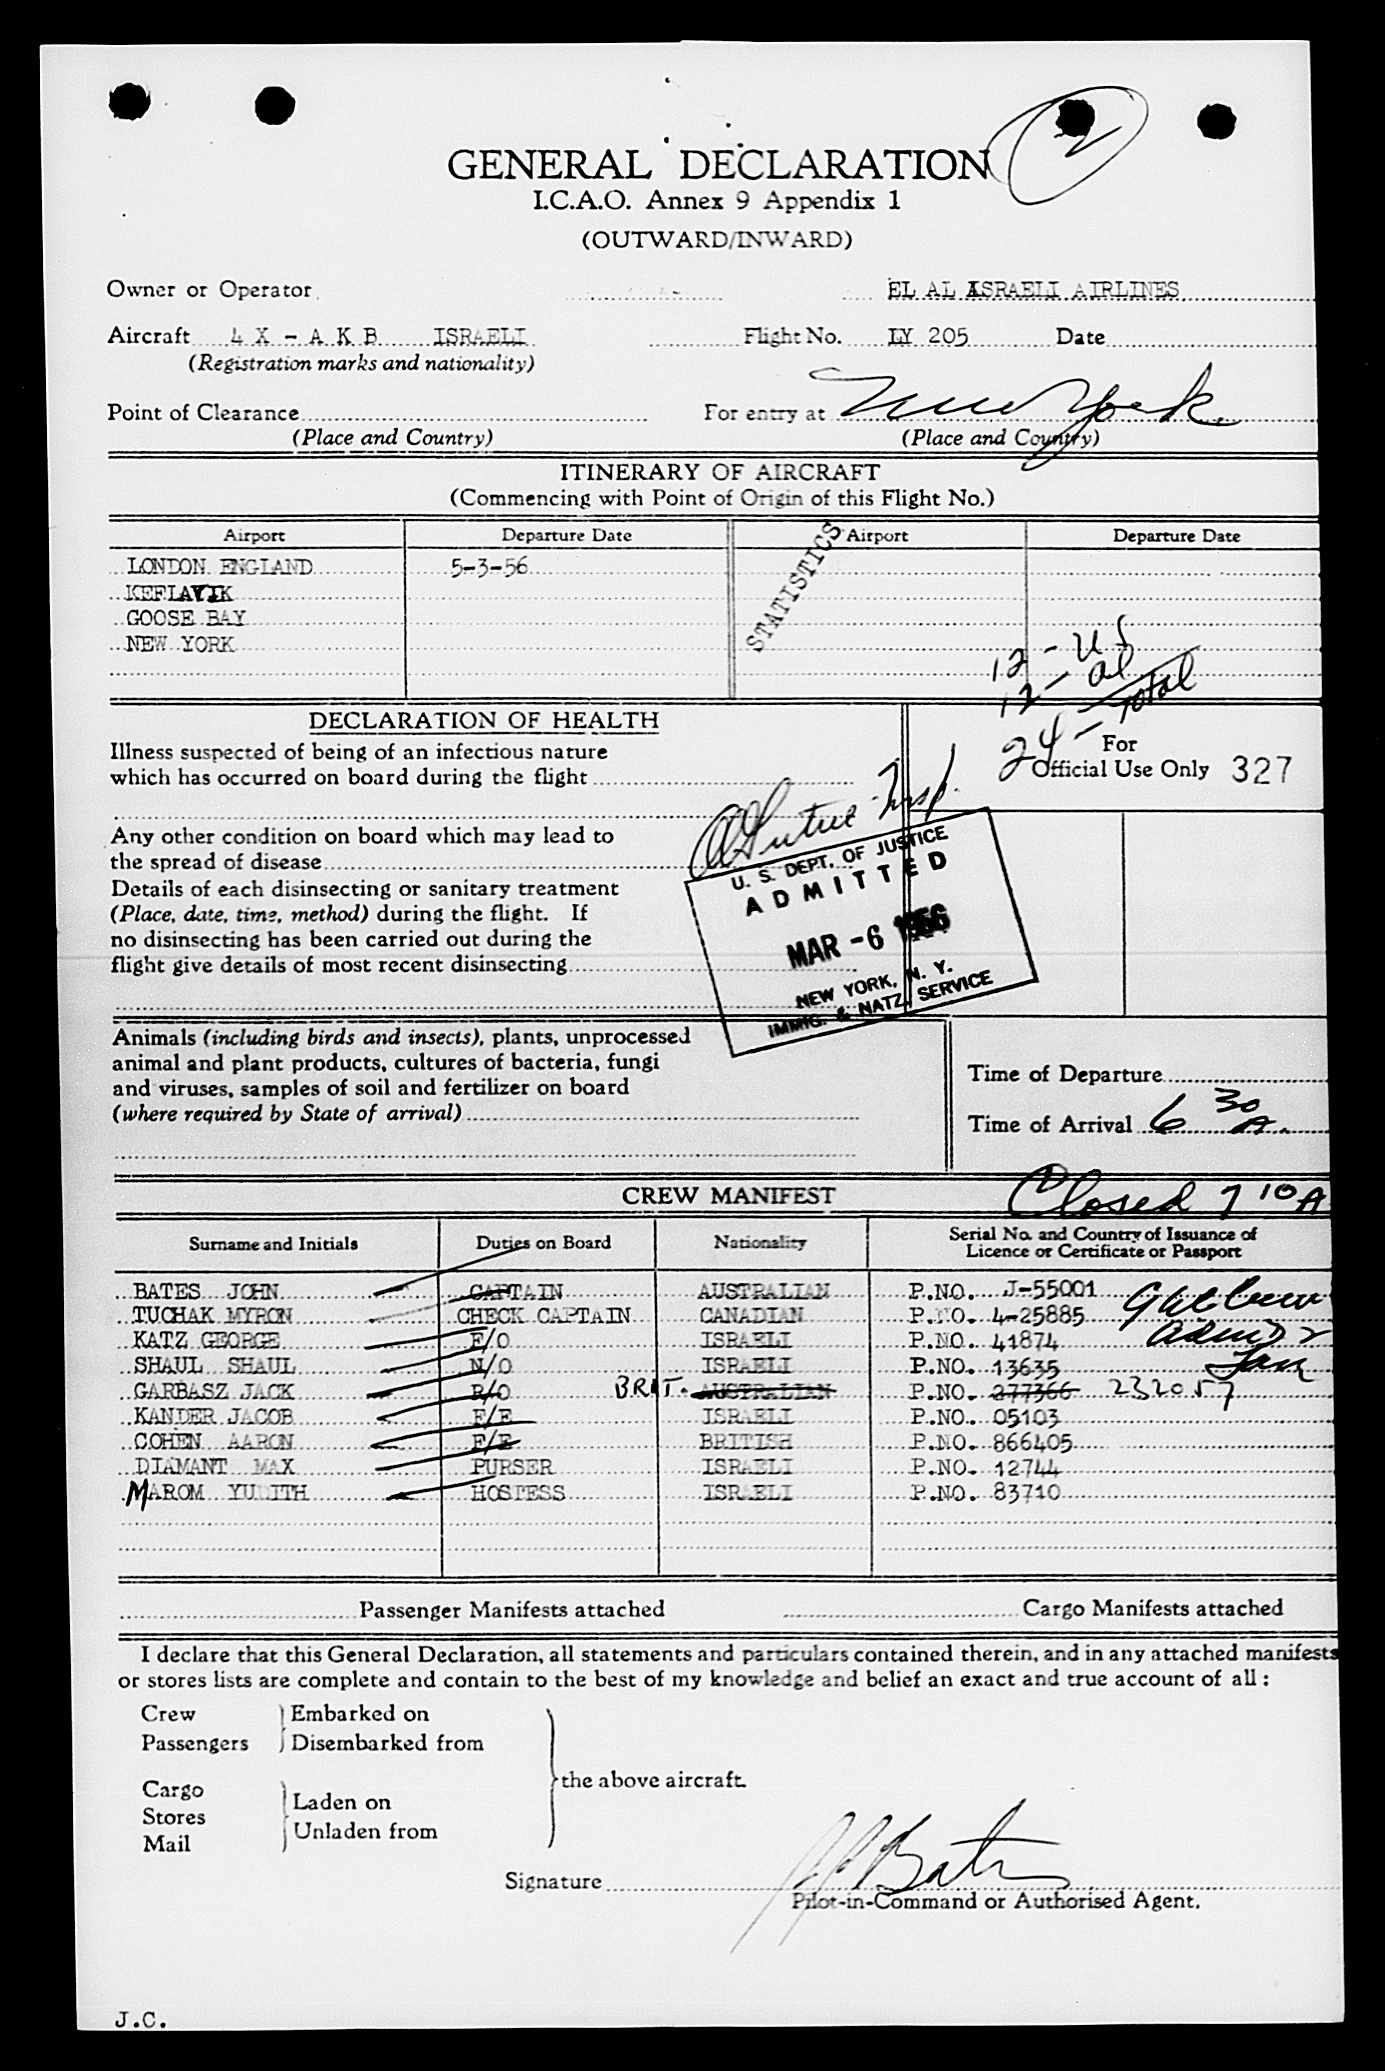 2
GENERAL DECLARATION
I.C.A.O. Annex 9 Appendix 1
(OUTWARD/INWARD)
Owner or Operator EL AL ISRAELI AIRLINES
Aircraft 4 X - A K B ISRAELI Flight No. LY 205 Date
(Registration marks and nationality)
Point of Clearance For entry at New York
(Place and Country) (Place and Country)
ITINERARY OF AIRCRAFT
(Commencing with Point of Origin of this Flight No.)
Airport Departure Date Airport Departure Date
STATISTICS
LONDON ENGLAND 5-3-56
KEFLAVIK
GOOSE BAY
NEW YORK
12 - US
12 - al
24 - Total
DECLARATION OF HEALTH
Illness suspected of being of an infectious nature
which has occurred on board during the flight
For
Official Use Only 327
Any other condition on board which may lead to
the spread of disease
Details of each disinsecting or sanitary treatment
(Place, date, time, method) during the flight. If
no disinsecting has been carried out during the
flight give details of most recent disinsecting
Insp.
U. S. DEPT. OF JUSTICE
ADMITTED
MAR -6 1956
NEW YORK, N. Y.
IMMIG. & NATZ. SERVICE
Animals (including birds and insects), plants, unprocessed
animal and plant products, cultures of bacteria, fungi
and viruses, samples of soil and fertilizer on board
(where required by State of arrival)
Time of Departure
Time of Arrival 6 30 A.
CREW MANIFEST Closed 7 10 A
Surname and Initials Duties on Board Nationality Serial No. and Country of Issuance of
Licence or Certificate or Passport
BATES JOHN CAPTAIN AUSTRALIAN P.NO. J-55001
TUCHAK MYRON CHECK CAPTAIN CANADIAN P.NO. 4-25885
KATZ GEORGE F/O ISRAELI P.NO. 41874
SHAUL SHAUL N/O ISRAELI P.NO. 13635
GARBASZ JACK R/O BRIT. AUSTRALIAN P.NO. 277366 232057
KANDER JACOB F/E ISRAELI P.NO. 05103
COHEN AARON F/E BRITISH P.NO. 866405
DIAMANT MAX PURSER ISRAELI P.NO. 12744
MAROM YUDITH HOSTESS ISRAELI P.NO. 83710
Passenger Manifests attached Cargo Manifests attached
I declare that this General Declaration, all statements and particulars contained therein, and in any attached manifests
or stores lists are complete and contain to the best of my knowledge and belief an exact and true account of all :
Crew Embarked on
Passengers Disembarked from
the above aircraft.
Cargo
Stores Laden on
Mail Unladen from
Signature J Bates
Pilot-in-Command or Authorised Agent.
J.C.